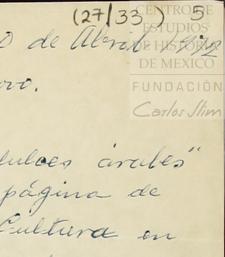 (27/33) 5
CENTRO DE
ESTUDIOS
DE HISTORIA
DE MEXICO
FUNDACIÓN
Carlos Slim
de Abril
dulces árabes"
página de
Cultura en